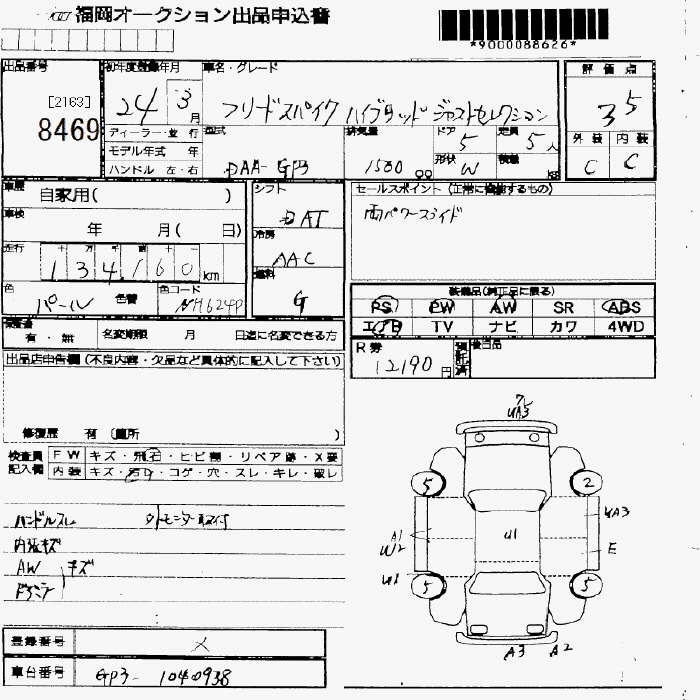 福岡オークション出品申込書
*9000088626*
出品番号
[2163]
8469
初年度登録年月
24 3月
ディーラー・並行
モデル年式 年
ハンドル 左・右
車名・グレード
フリードスパイク ハイブリッド ジャストセレクション
型式
DAA-GP3
排気量
1500 cc
ドア
5
形状
W
定員
5人
積載
KG
評価点
3.5
外装 内装
C C
車歴
自家用( )
車検
年 月( 日)
走行
十 万 千 百 十 一
134,160 km
色
パール
色替
色コード
NH624P
シフト
DAT
冷房
AAC
燃料
G
セールスポイント(正常に稼働するもの)
両パワースライド
装備品(純正品に限る)
PS PW AW SR ABS
エアB TV ナビ カワ 4WD
R券
12190円
預託済
後日品
有・無
名変期限 月 日迄に名変できる方
出品店申告欄(不良内容・欠品など具体的に記入して下さい)
修復歴 有 (箇所 )
検査員記入欄
FW キズ・飛石・ヒビ割・リペア跡・X要
内装 キズ・汚れ・コゲ・穴・スレ・キレ・破レ
ハンドルスレ
外モニター取付
内張キズ
AW
ドアミラー
キズ
登録番号
メ
車台番号
GP3-1040938
UA3
5
2
UA3
A1
U1
E
5
5
A3 A2